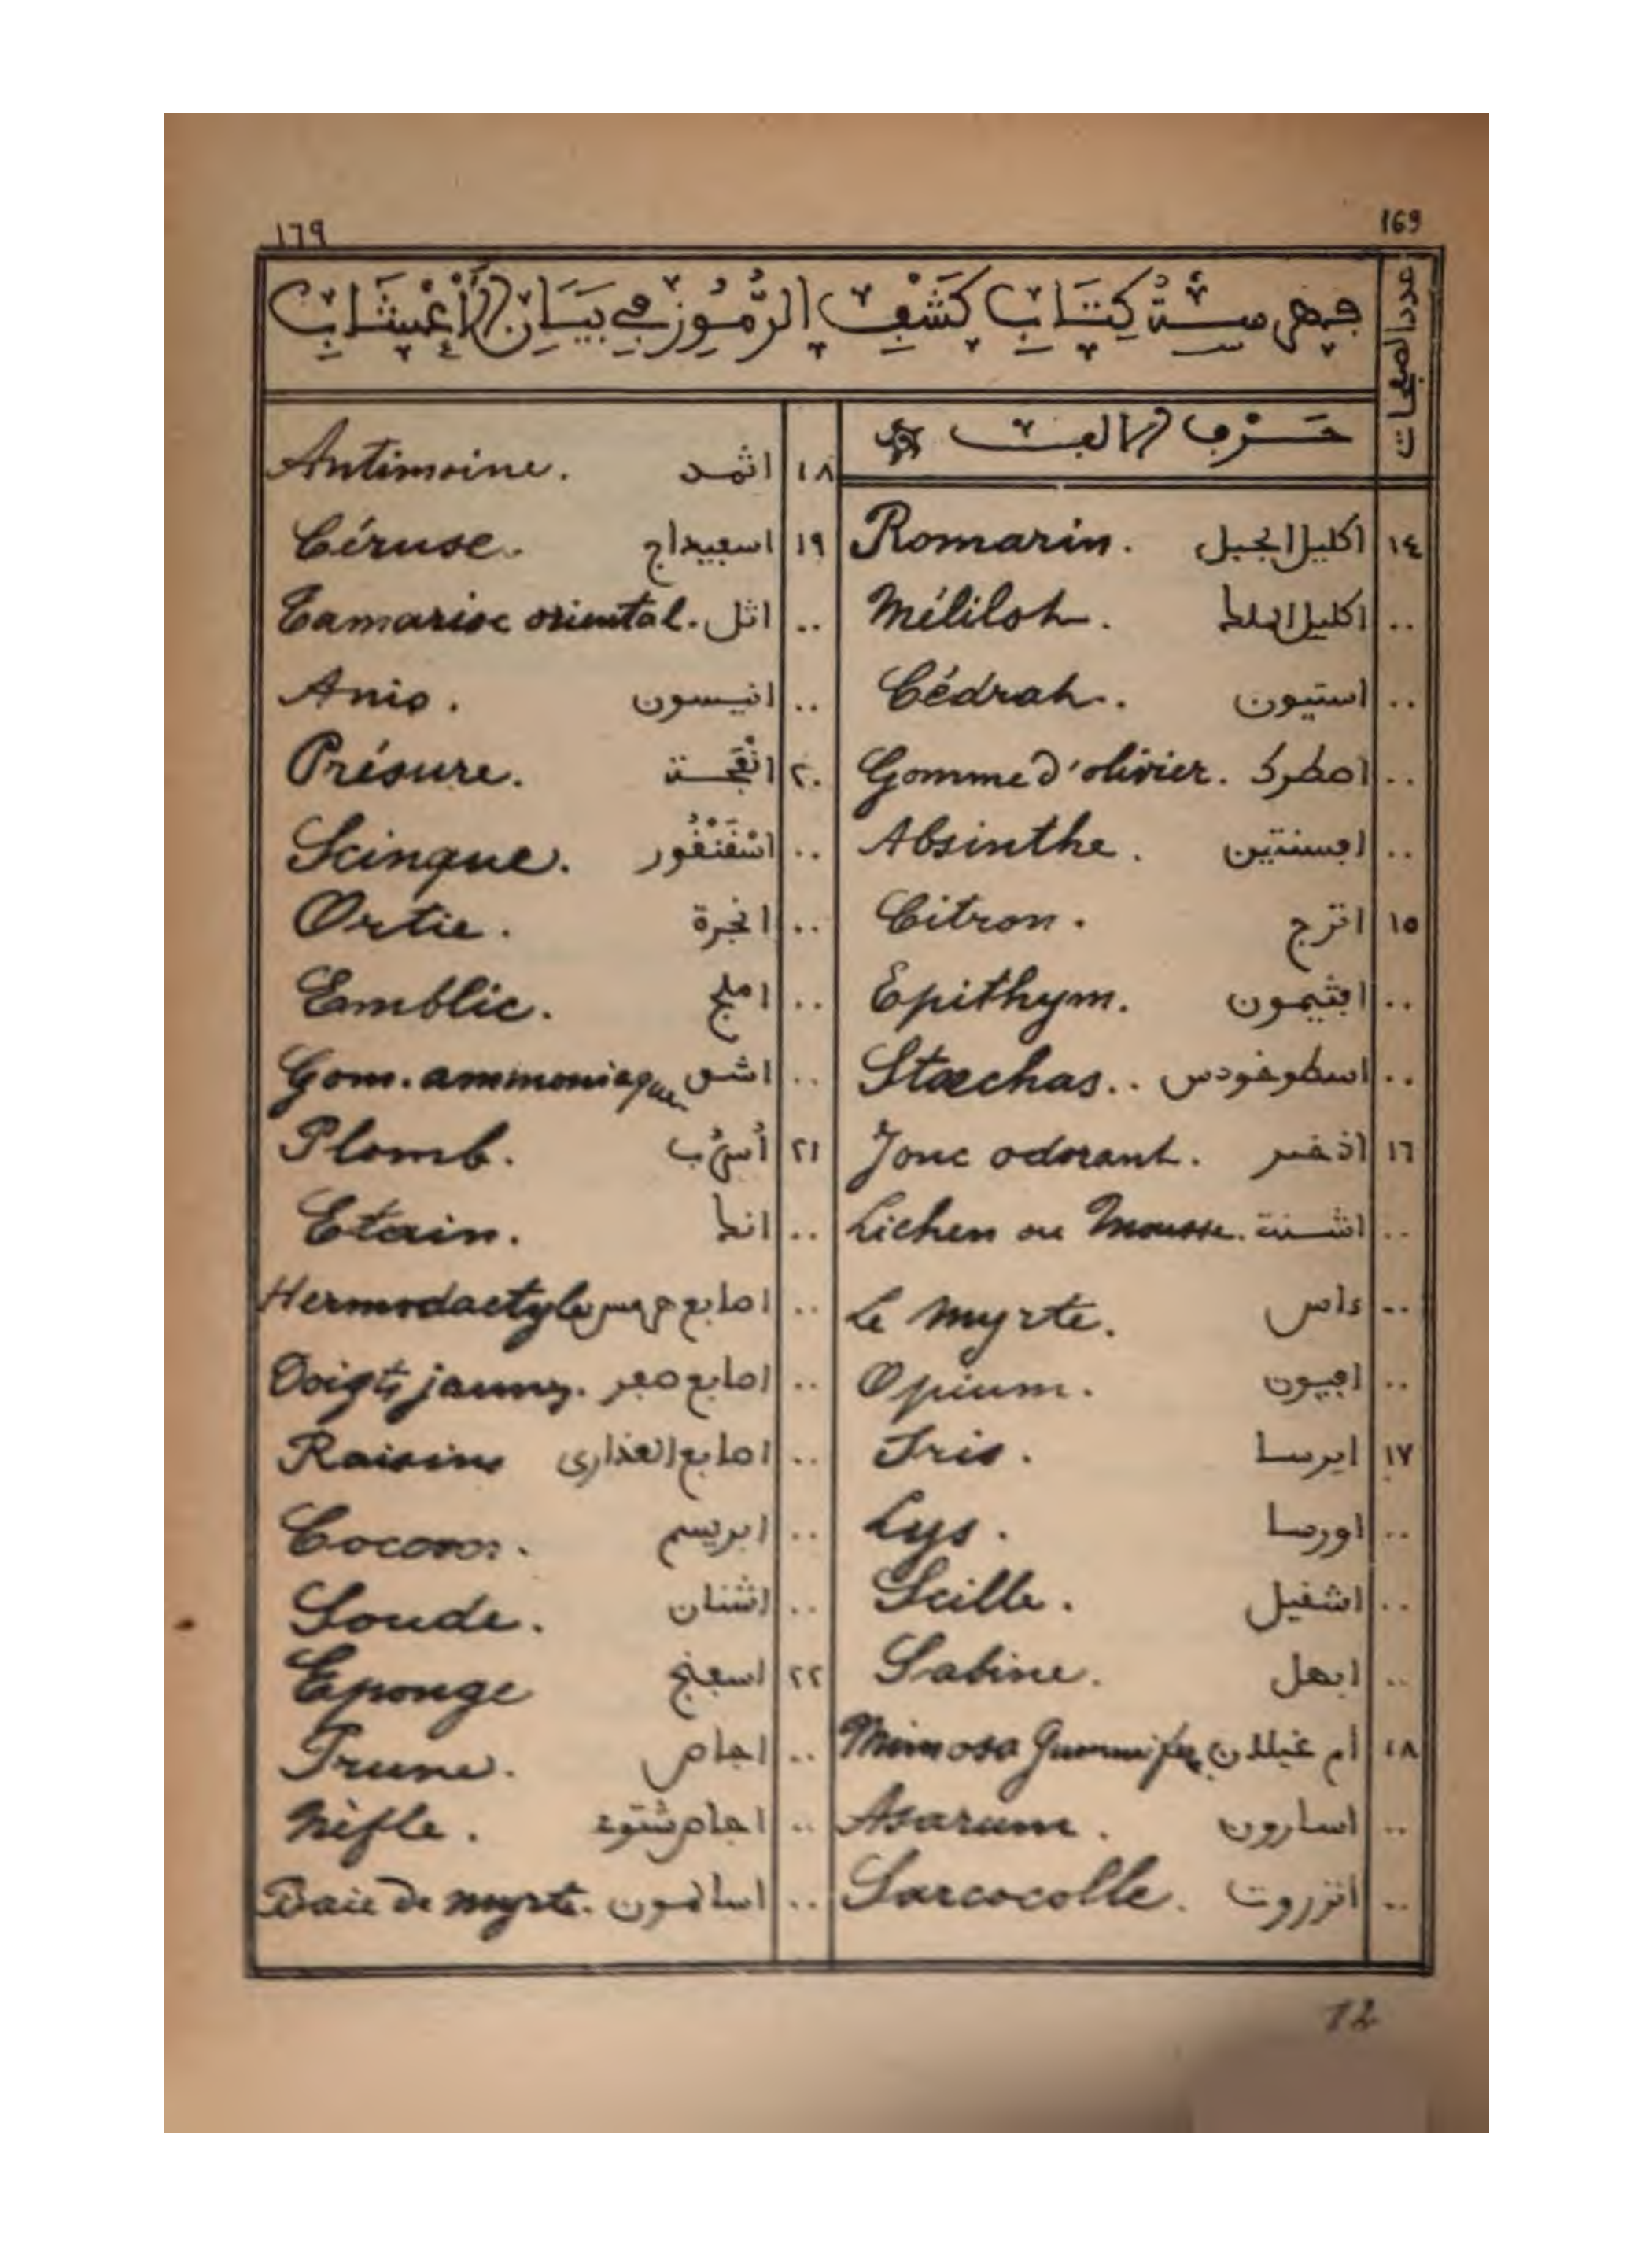 ١٦٩ 169
فهرسة كتاب كشف الرموز في بيان الأعشاب
عدد الصفحات
حرف الألف
١٤ اكليل الجبل Romarin.
.. اكليل الملك Mélilot.
.. استيون Cédrat.
.. اصطرك Gomme d'olivier.
.. افسنتين Absinthe.
١٥ اترج Citron.
.. افثيمون Epithym.
.. اسطوخودس Stœchas..
١٦ اذخر Jonc odorant.
.. اشنة Lichen ou Mousse.
.. ءاس Le myrte.
.. افيون Opium.
١٧ ايرسا Iris.
.. اورسا Lys.
.. اشفيل Scille.
.. ابهل Sabine.
١٨ أم غيلان Mimosa Gummifer
.. اسارون Asarum.
.. انزروت Sarcocolle.
١٨ اثمد Antimoine.
١٩ اسفيداج Céruse.
.. اثل Tamarisc oriental.
.. انيسون Anis.
٢٠ انفحة Présure.
.. اسْقَنْقُور Scinque.
.. انجرة Ortie.
.. املج Emblic.
.. اشق Gom. ammoniaque
٢١ أسرب Plomb.
.. انك Etain.
.. اصابع هرمس Hermodactyle
.. اصابع صفر Doigts jaunes.
.. اصابع العذارى Raisins
.. ابريسم Cocons.
.. اشنان Soude.
٢٢ اسفنج Eponge
.. اجاص Prune.
.. اجاص شتوي Nèfle.
.. Baie de myrte.
12